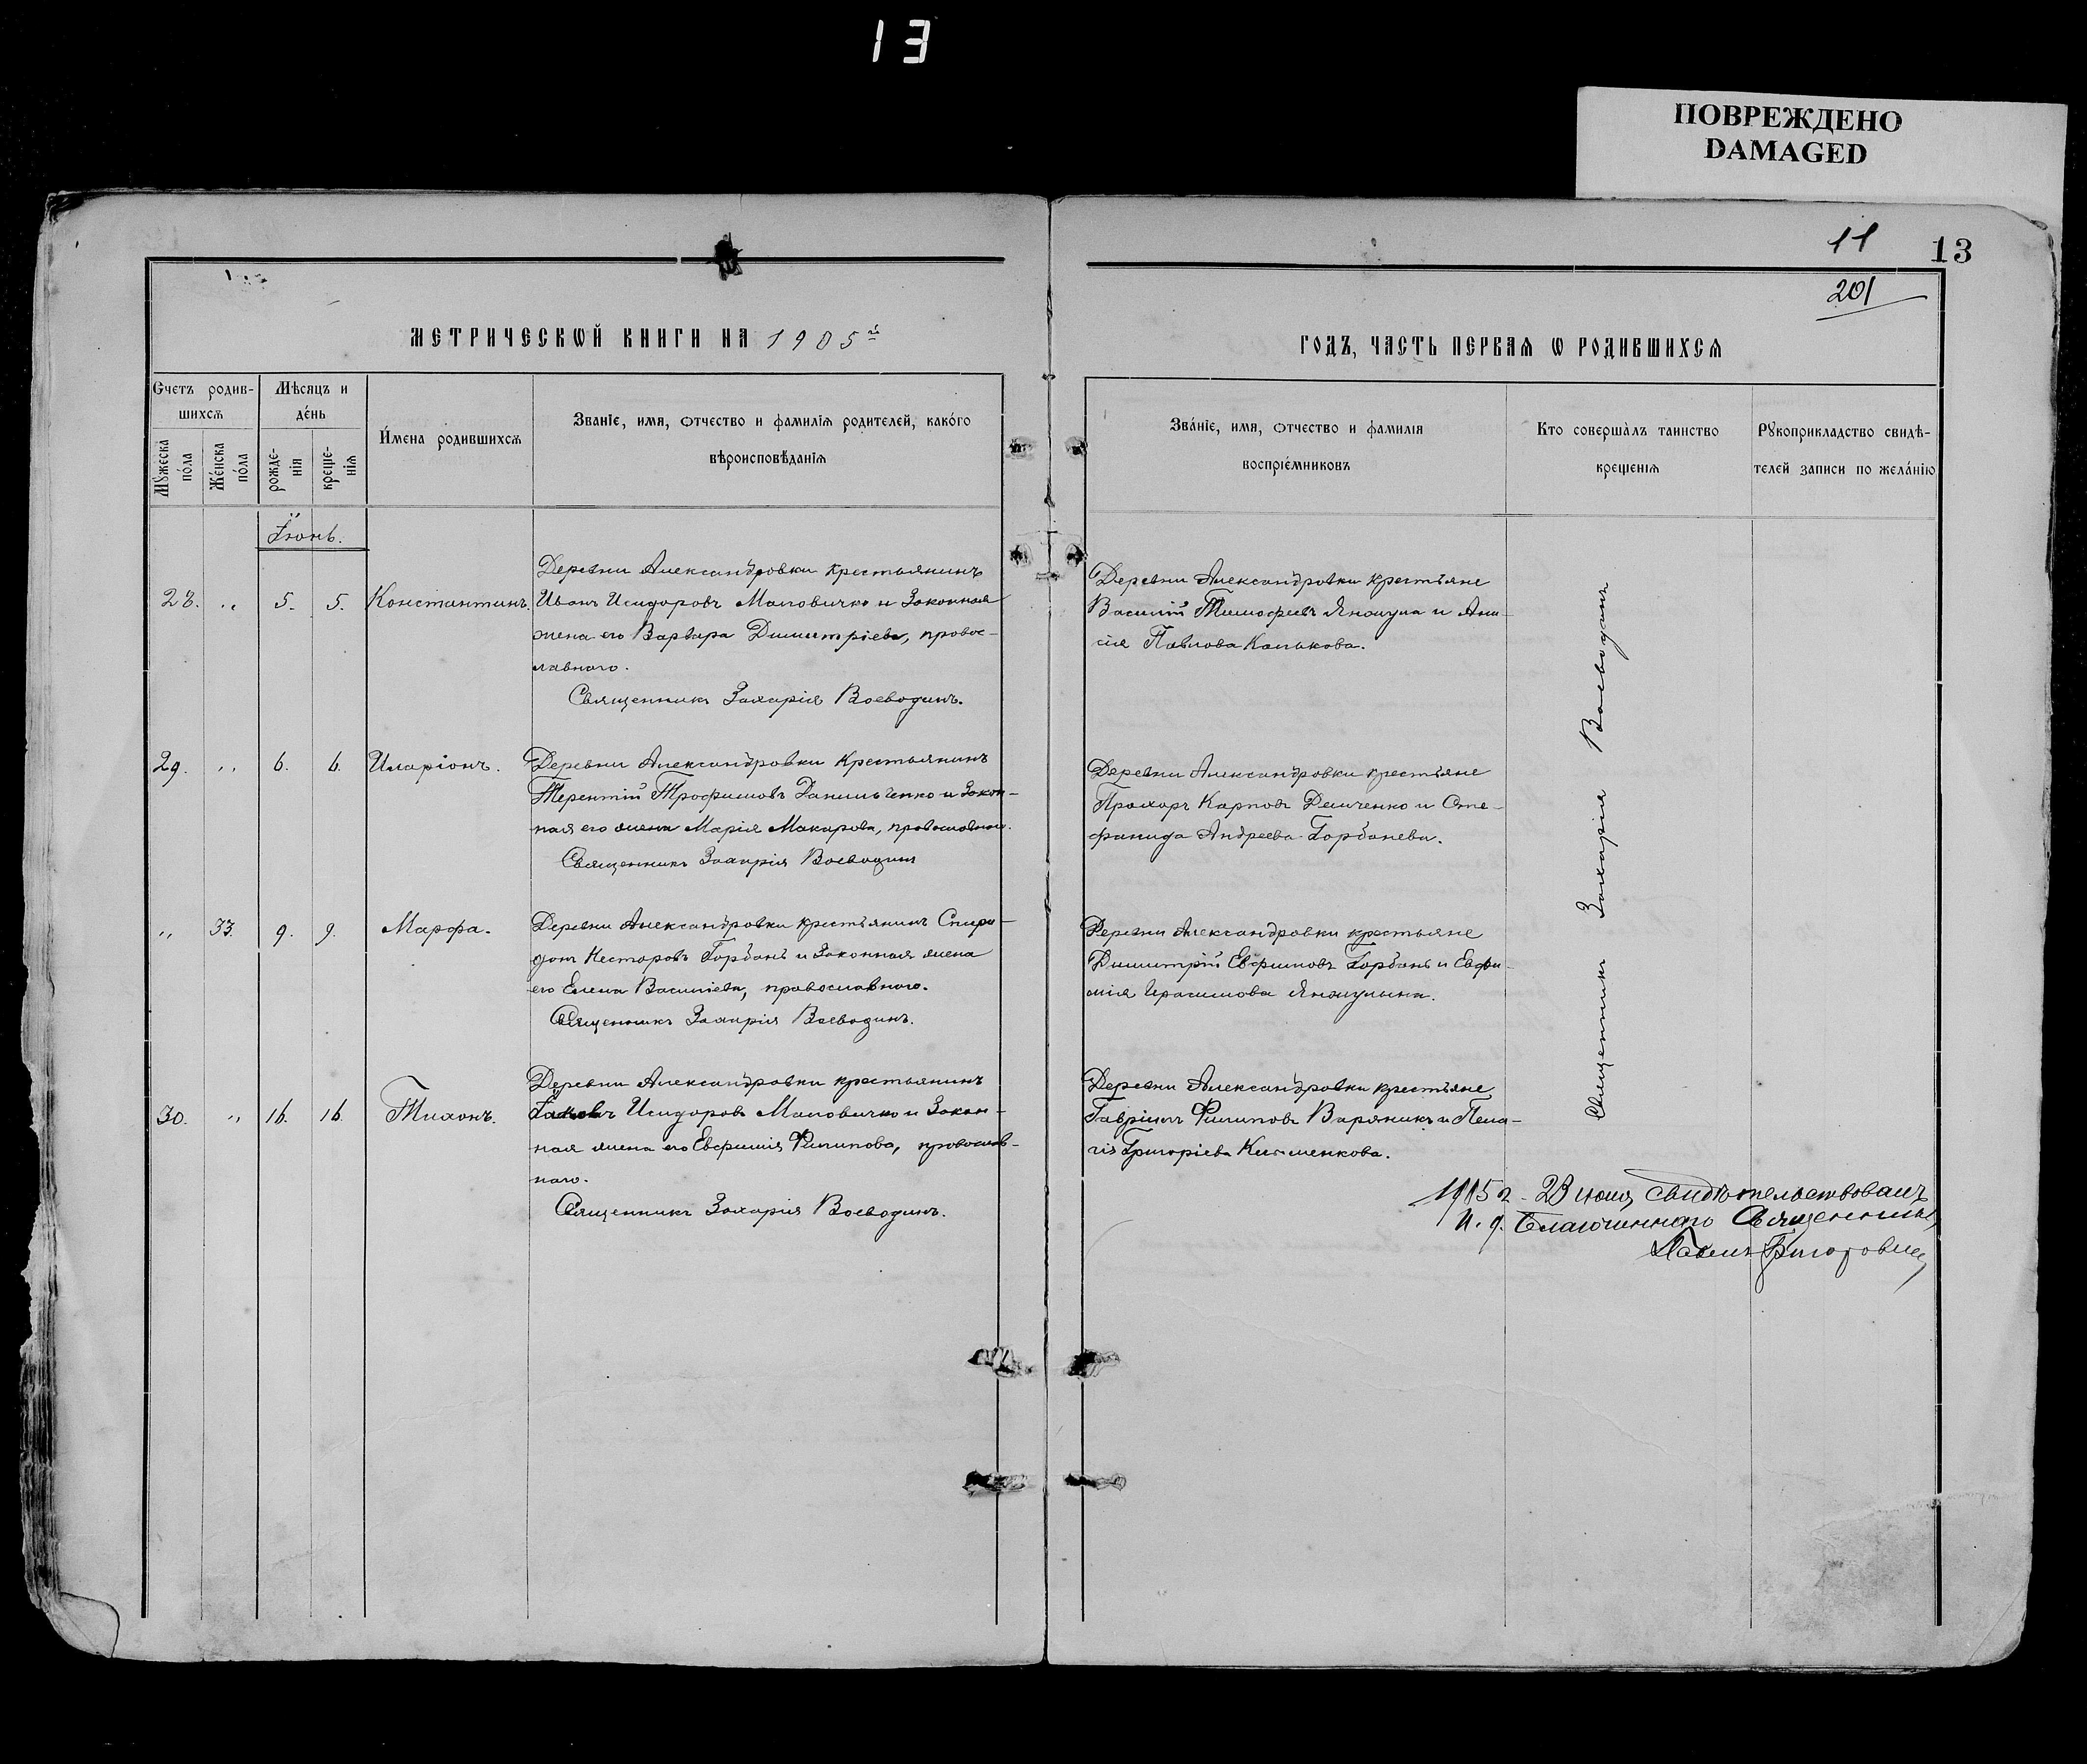 13
ПОВРЕЖДЕНО
DAMAGED
11
13
201
МЕТРИЧЕСКѠЙ КНИГИ НА 1905й
ГОДЪ, ЧАСТЬ ПЕРВАѦ Ѡ РОДИВШИХСѦ
Счетъ родив-
шихсѧ
Мꙋжеска пола
Женска пола
Мѣсяцъ и
день
рожде-
нія
креще-
нія
Имена родившихсѧ
Званіе, имя, отчество и фамиліѧ родителей, какого
вѣроисповѣданіѧ
Званіе, имя, отчество и фамилія
воспріемниковъ
Кто совершалъ таинство
крещеніѧ
Рꙋкоприкладство свидѣ-
телей записи по желанію
Іюнь.
28. „ 5. 5. Константинъ.
Деревни Александровки крестьянинъ
Иванъ Исидоровъ Маловичко и законная
жена его Варвара Димитріева, правос-
лавного.
Священникъ Захарія Воеводинъ.
Деревни Александровки крестьяне
Василій Тимофеевъ Янжула и Ани-
сія Павлова Калькова.
29. „ 6. 6. Иларіонъ.
Деревни Александровки крестьянинъ
Терентій Трофимовъ Данильченко и закон-
ная его жена Марія Макарова, православного.
Священникъ Захарія Воеводинъ
Деревни Александровки крестьяне
Прохоръ Карповъ Демченко и Сте-
фанида Андреева Горбанева.
„ 33. 9. 9. Марфа.
Деревни Александровки крестьянинъ Спири-
донъ Несторовъ Горбань и законная жена
его Елена Васильева, православного.
Священникъ Захарія Воеводинъ.
Деревни Александровки крестьяне
Димитрій Евфимовъ Горбань и Евфи-
мія Герасимова Янжулына.
30. „ 16. 16. Тихонъ.
Деревни Александровки крестьянинъ
Іаковъ Исидоровъ Маловичко и закон-
ная жена его Евфимія Филипова, православ-
ного.
Священникъ Захарія Воеводинъ.
Деревни Александровки крестьяне
Гавріилъ Филиповъ Вареникъ и Пела-
гія Григоріева Клименкова.
Священникъ Захарія Воеводинъ
1905 г. 23 июня свидѣтельствовалъ
И. д. Благочиннаго Священникъ
Павелъ Григоровичъ